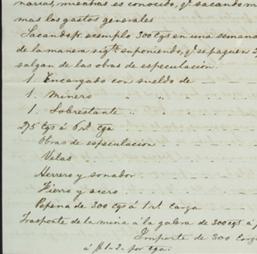 narias, mientras es conocido, y sacando
mas los gastos generales
Sacandose p. ejemplo 300 cgs en una semana
de la manera sigte suponiendo, q. se paguen
salgan de las obras de especulacion.
1. Encargado con sueldo de
1. Minero " "
1. Sobrestante " "
275 cgs á 6 rl. cga
Obras de especulacion
Velas
Herrero y sonador
Fierro y acero
Pepena de 300 cgs á 1 rl. carga
Trasporte de la mina a la galera de 300 cgs á
Importe de 300 carg
á \$1.2. por cga.